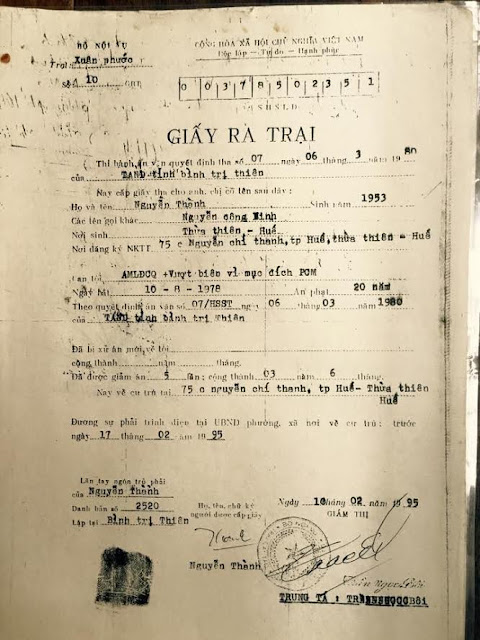 BỘ NỘI VỤ
Trại Xuân phước
Số 10 GRT
CỘNG HÒA XÃ HỘI CHỦ NGHĨA VIỆT NAM
Độc lập — Tự do — Hạnh phúc
0 0 3 7 8 5 0 2 3 5 1
SHSLD
GIẤY RA TRẠI
Thi hành án văn quyết định tha số 07 ngày 06 tháng 3 năm 19 80
của TAND tỉnh bình trị thiên
Nay cấp giấy tha cho anh, chị có tên sau đây :
Họ và tên Nguyễn Thành Sinh năm 1953
Các tên gọi khác Nguyễn công Minh
Nơi sinh Thừa thiên - Huế
Nơi đăng ký NKTT 75 c Nguyễn chí thanh, tp Huế, thừa thiên - Huế
Can tội AMLĐCQ +Vượt biên vì mục đích PCM
Ngày bắt 10 - 8 - 1978 Án phạt 20 năm
Theo quyết định án văn số 07/HSST ngày 06 tháng 03 năm 1980
của TAND tỉnh bình trị Thiên
Đã bị xử án mới, về tội
cộng thành năm tháng.
Đã được giảm án 5 lần ; cộng thành 03 năm 6 tháng.
Nay về cư trú tại 75 c nguyễn chí thanh, tp Huế- Thừa thiên
Huế
Đương sự phải trình diện tại UBND phường, xã nơi về cư trú : trước
ngày 17 tháng 02 năm 19 95
Lăn tay ngón trỏ phải
của Nguyễn Thành
Danh bản số 2520
Lập tại Bình trị Thiên
Họ, tên, chữ ký
người được cấp giấy
Nguyễn Thành
Ngày 10 tháng 02 năm 19 95
GIÁM THỊ
TRUNG TÁ :